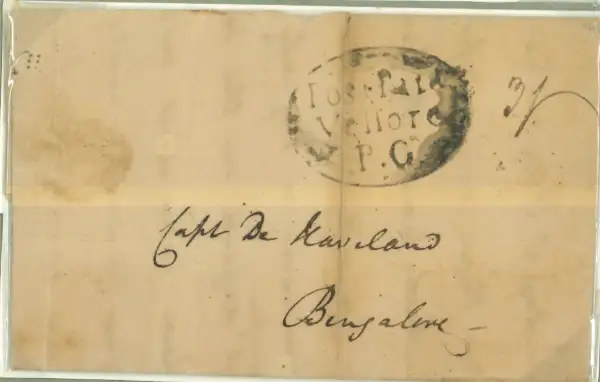 Post Paid
Vellore
P.G
3/
Capt De Havelland
Bengalore